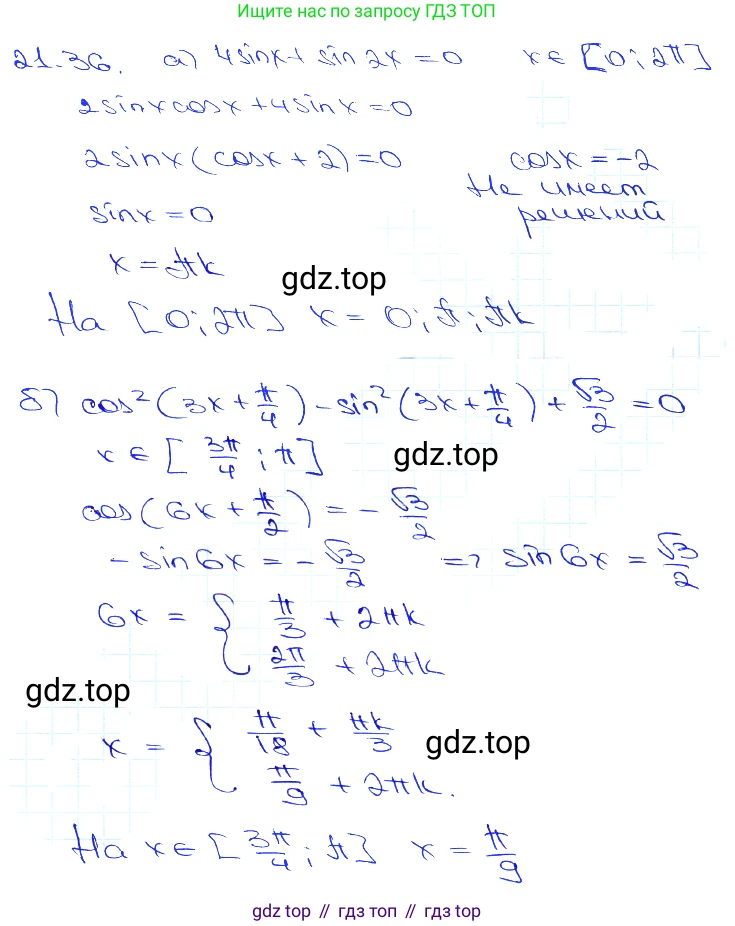 Ищите нас по запросу ГДЗ ТОП
21.36. а) 4sinx + sin2x = 0 x ∈ [0; 2π]
2sinxcosx + 4sinx = 0
2sinx(cosx + 2) = 0 cosx = -2
Не имеет
решений
sinx = 0
x = πk
gdz.top
На [0; 2π] x = 0; π; πk
б) cos²(3x + π/4) - sin²(3x + π/4) + √3/2 = 0
x ∈ [3π/4; π]
gdz.top
cos(6x + π/2) = -√3/2
-sin6x = -√3/2 => sin6x = √3/2
6x = { π/3 + 2πk
2π/3 + 2πk
gdz.top
x = { π/18 + πk/3
gdz.top
π/9 + 2πk.
На x ∈ [3π/4; π] x = π/9
gdz top // гдз топ // gdz top